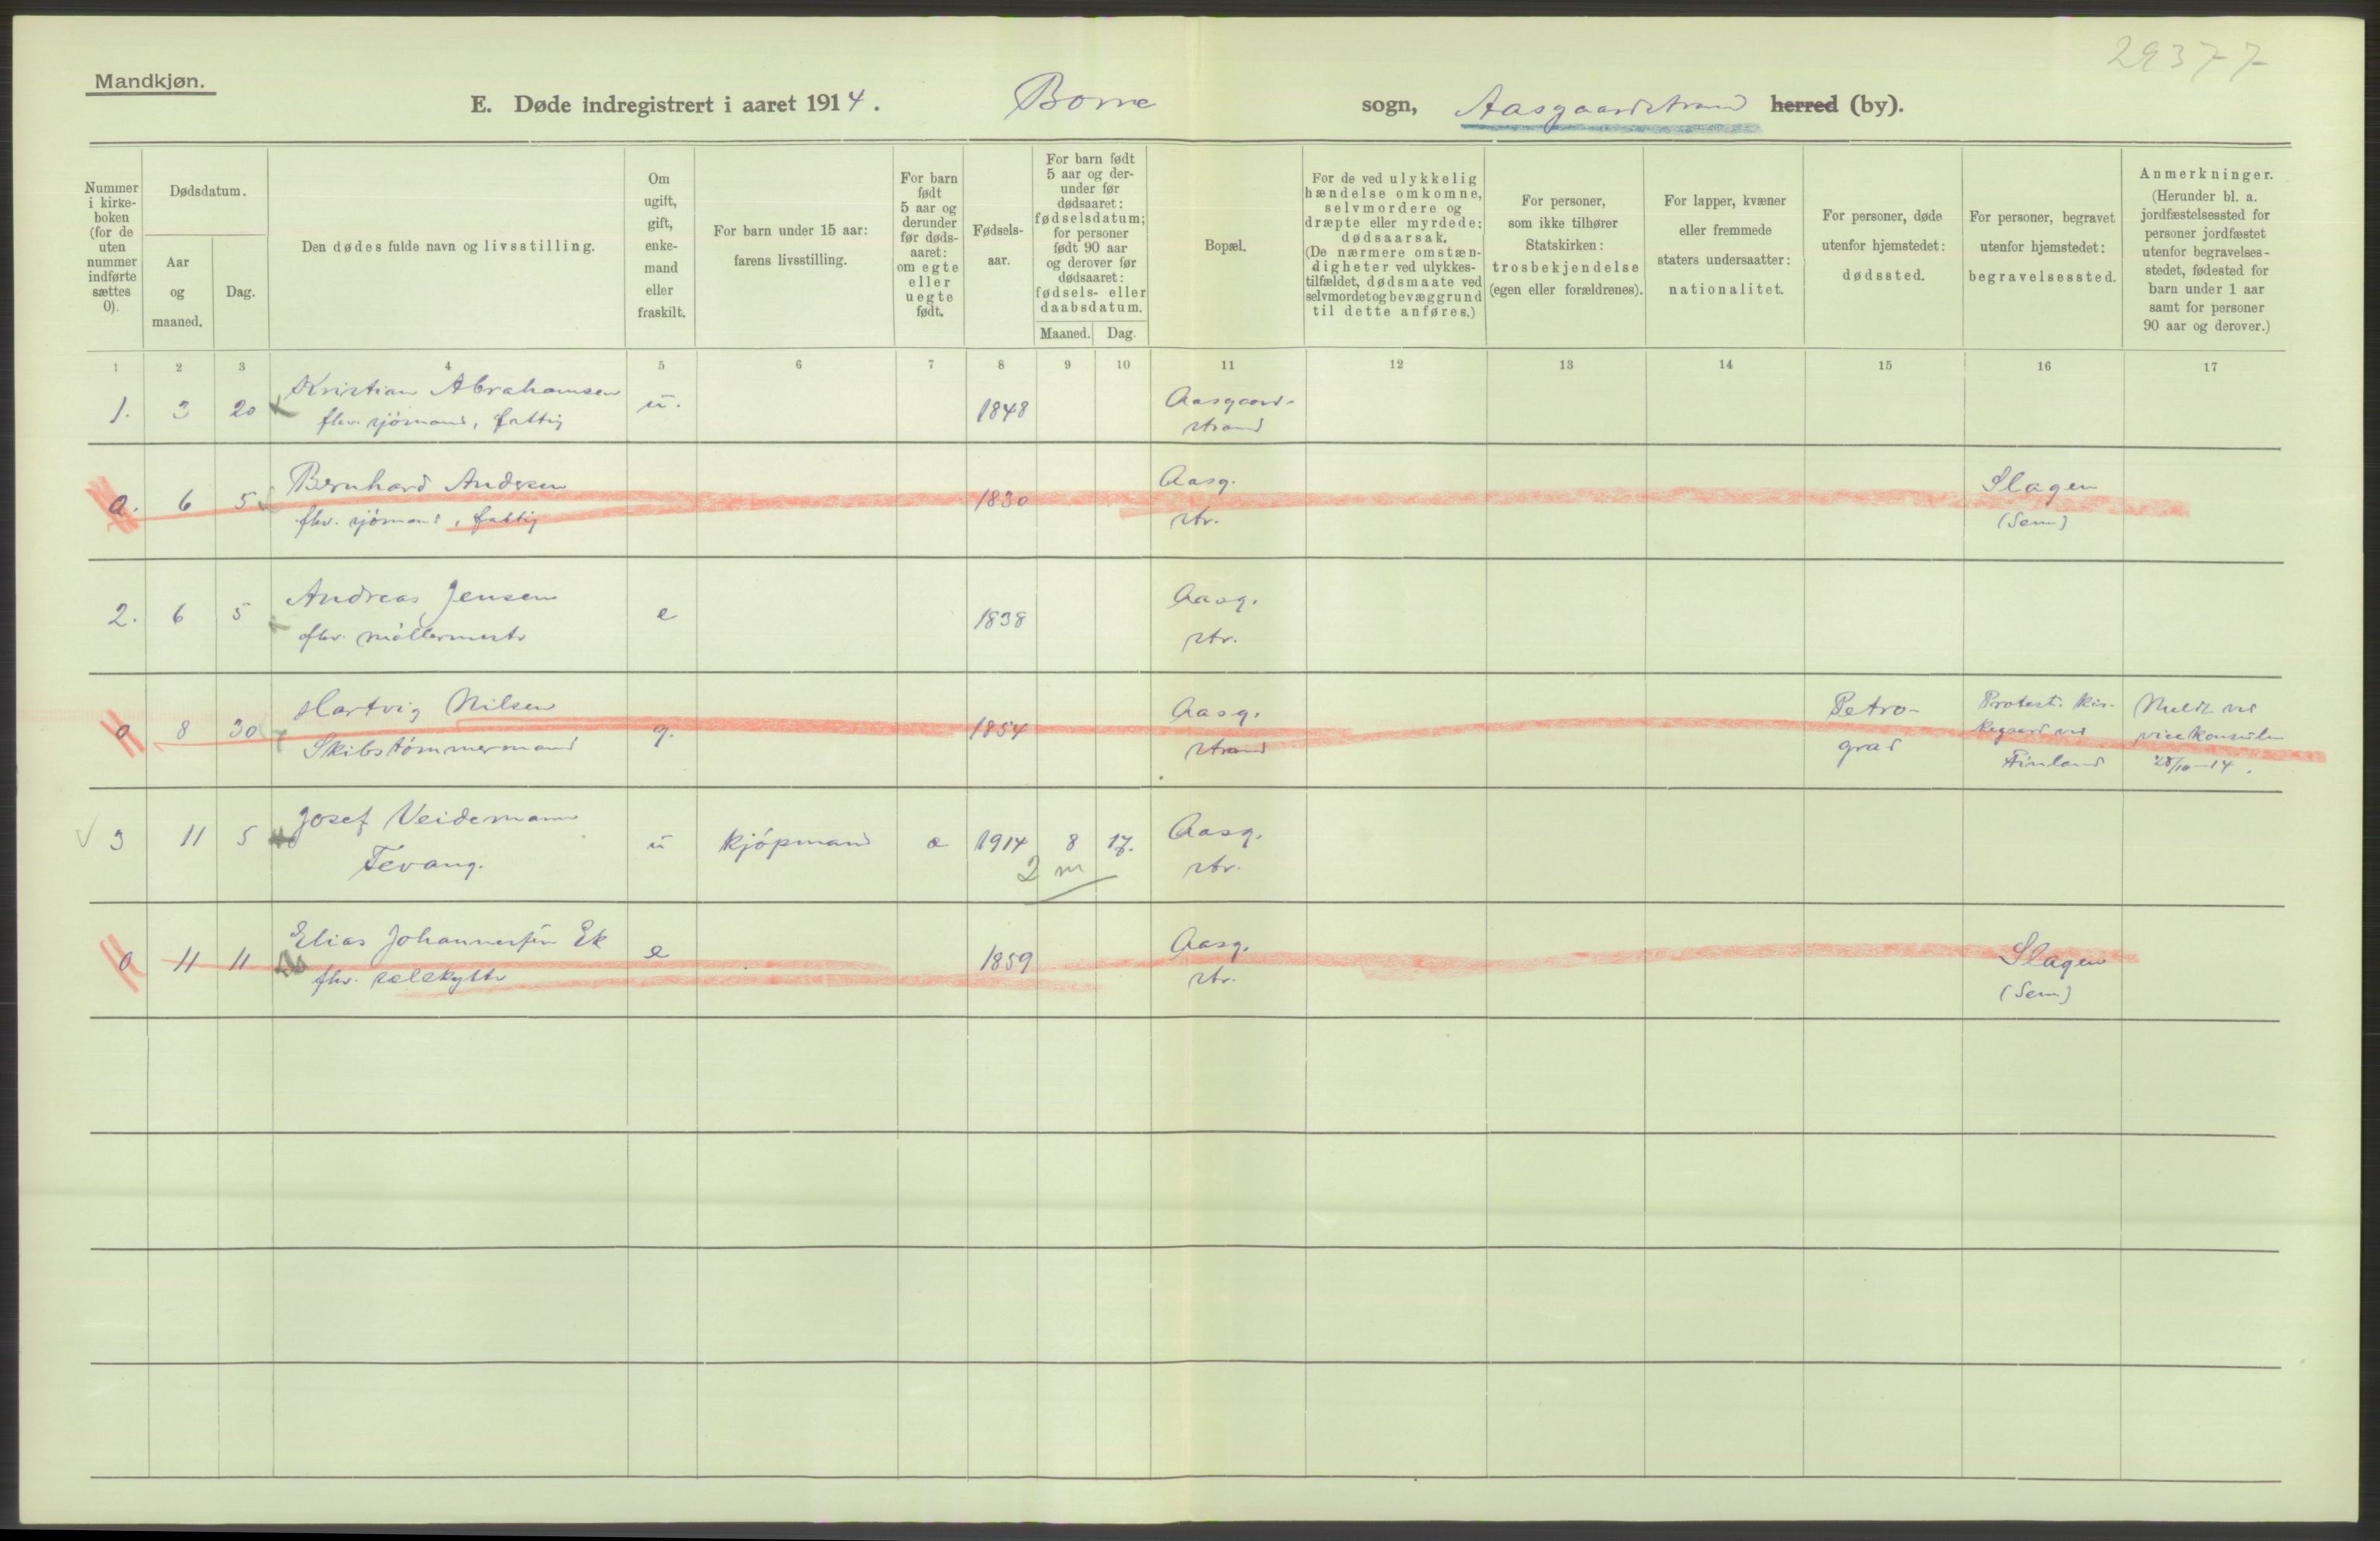 29377
Mandkjøn.
E. Døde indregistrert i aaret 1914. Borre sogn, Aasgaardstrand herred (by).
Nummer
i kirke-
boken
(for de
uten
nummer
indførte
sættes
0).
Dødsdatum.
Aar
og
maaned.
Dag.
Den dødes fulde navn og livsstilling.
Om
ugift,
gift,
enke-
mand
eller
fraskilt.
For barn under 15 aar:
farens livsstilling.
For barn
født
5 aar og
derunder
før døds-
aaret:
om egte
eller
uegte
født.
Fødsels-
aar.
For barn født
5 aar og der-
under før
dødsaaret:
fødselsdatum;
for personer
født 90 aar
og derover før
dødsaaret:
fødsels- eller
daabsdatum.
Maaned. Dag.
Bopæl.
For de ved ulykkelig
hændelse omkomne,
selvmordere og
dræpte eller myrdede:
dødsaarsak.
(De nærmere omstæn-
digheter ved ulykkes-
tilfældet, dødsmaate ved
selvmordet og bevæggrund
til dette anføres.)
For personer,
som ikke tilhører
Statskirken:
trosbekjendelse
(egen eller forældrenes).
For lapper, kvæner
eller fremmede
staters undersaatter:
nationalitet.
For personer, døde
utenfor hjemstedet:
dødssted.
For personer, begravet
utenfor hjemstedet:
begravelsessted.
Anmerkninger.
(Herunder bl. a.
jordfæstelsessted for
personer jordfæstet
utenfor begravelses-
stedet, fødested for
barn under 1 aar
samt for personer
90 aar og derover.)
1 2 3 4 5 6 7 8 9 10 11 12 13 14 15 16 17
1. 3 20 Kristian Abrahamsen u. 1848 Aasgaard-
fhv. sjömand, fattig strand
0. 6 5 Bernhard Andersen 1830 Aasg. Slagen
fhv. sjömand, fattig str. (Sem)
2. 6 5 Andreas Jensen e 1838 Aasg.
fhv. möllermester str.
0 8 30 Hartvig Nilsen g. 1854 Aasg. Petro- Protest. kir- Meldt ved
Skibstömmermand strand grad kegaard ved vicekonsulen
Finland 28/10-14.
3 11 5 Josef Veidemann u kjöpmand e 1914 8 17. Aasg.
Tevang. 2 m str.
0 11 11 Elias Johannessen Ek e 1859 Aasg. Slagen
fhv. selskytter str. (Sem)